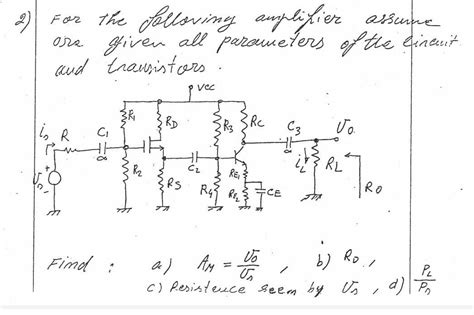 2) For the following amplifier assume
are given all parameters of the circuit
and transistors.
Vcc
R1 RD R3 RC C3 Vo
is R C1
∞ ∞
iL RL
Vs + - R2 C2 RE1
∞ Ro
RS R4 RE2 CE
Find : a) AM = Vo/Vs , b) Ro ,
c) Resistence seem by Vs , d) PL/Ps